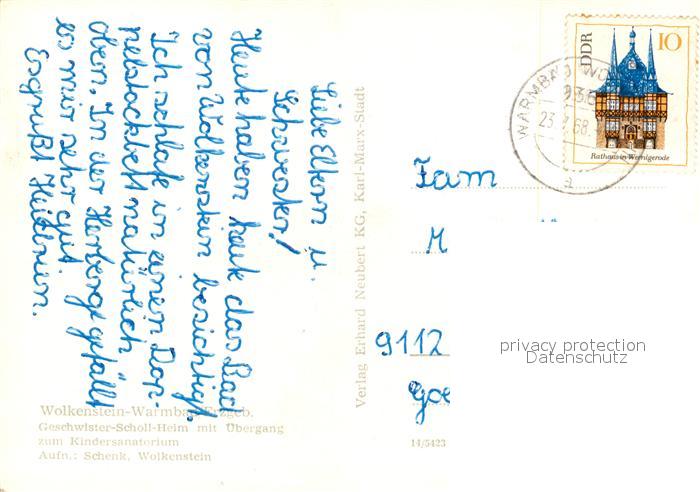 Liebe Eltern u.
Schwester!
Heute haben heut das Bad
von Wolkenstein besichtigt.
Ich schlafe in einen Dop-
pelstockbett natürlich
oben. In der Herberge gefällt
es mir sehr gut.
Es grüßt Heidrun.
Wolkenstein-Warmbad/Erzgeb.
Geschwister-Scholl-Heim mit Übergang
zum Kindersanatorium
Aufn.: Schenk, Wolkenstein
Verlag Erhard Neubert KG, Karl-Marx-Stadt
14/5423
DDR
10
Rathaus in Wernigerode
WARMBAD WO
23.7.68
a
Fam
M
9112
Goe
privacy protection
Datenschutz